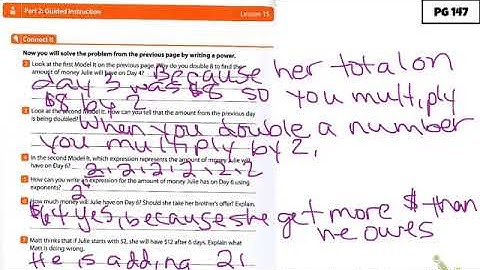 Part 2: Guided Instruction
Lesson 15
PG 147
Connect It
Now you will solve the problem from the previous page by writing a power.
2 Look at the first Model It on the previous page. Why do you double 8 to find the
amount of money Julie will have on Day 4?
Because her total on
day 3 was $8 so you multiply
$8 by 2
3 Look at the second Model It. How can you tell that the amount from the previous day
is being doubled?
When you double a number
you multiply by 2.
4 In the second Model It, which expression represents the amount of money Julie will
have on Day 6?
2·2·2·2·2·2
5 How can you write an expression for the amount of money Julie has on Day 6 using
exponents?
2⁶
6 How much money will Julie have on Day 6? Should she take her brother's offer? Explain.
$64 yes, because she get more $ than
he owes
7 Matt thinks that if Julie starts with $2, she will have $12 after 6 days. Explain what
Matt is doing wrong.
He is adding